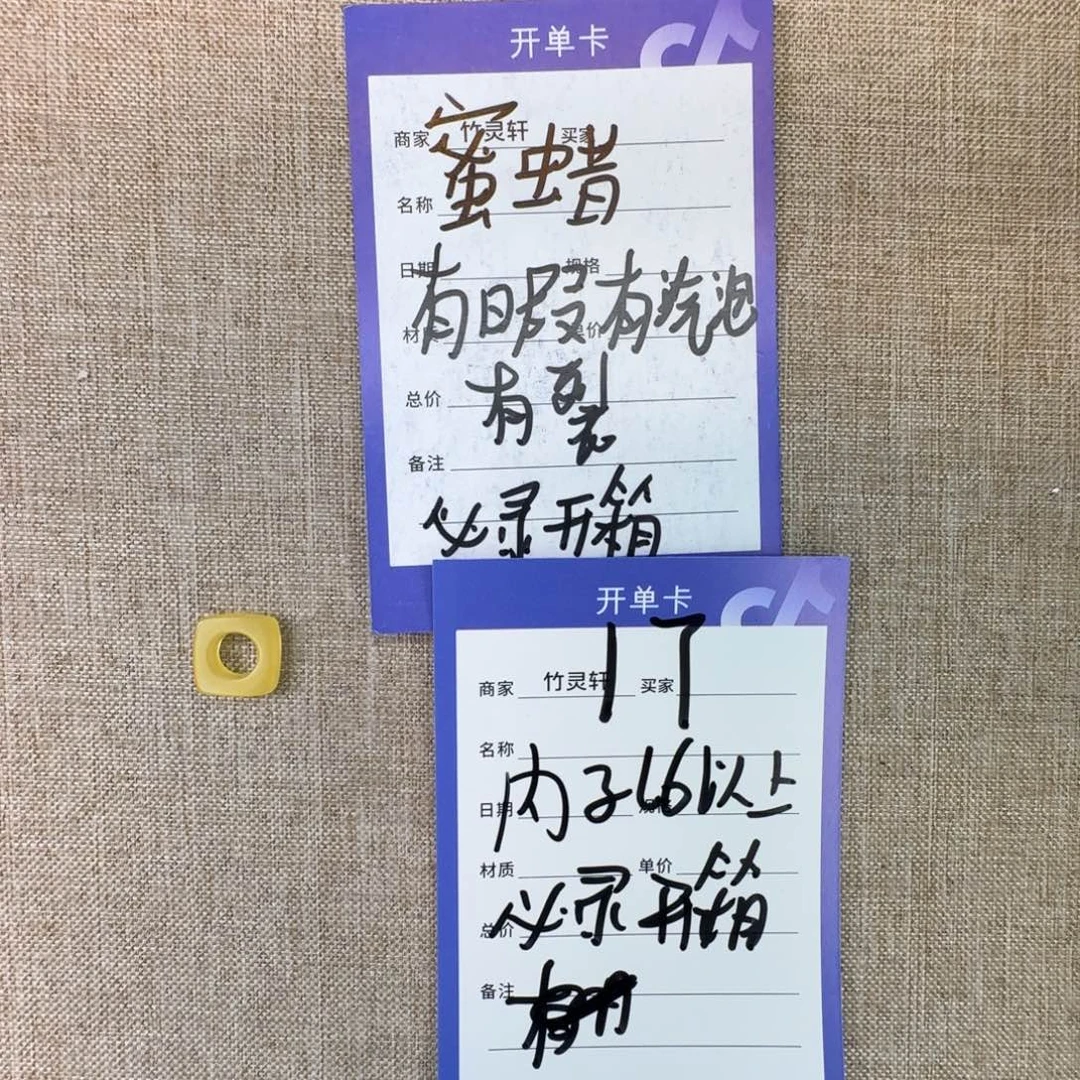 开单卡
商家 竹灵轩 买家
蜜虫蜡
名称
日期 规格
有日瑕有汽泡
材质 单价
总价
有裂
备注
必录开箱
开单卡
1丁
商家 竹灵轩 买家
名称
内子16以上
日期
材质 单价
必录开箱
总价
备注